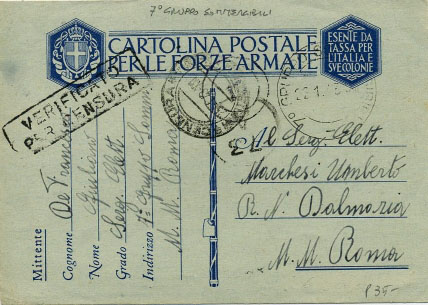 7° GRUPPO SOMMERGIBILI
CARTOLINA POSTALE
PER LE FORZE ARMATE
ESENTE DA
TASSA PER
L'ITALIA E
SVE COLONIE
VERIFICATO
PER CENSURA
Al Serg. Elett.
Marchesi Umberto
R. N. Dalmazia
M. M. Roma
Mittente
Cognome De Francesco
Nome Giuliano
Grado Serg. Elett.
Indirizzo 7° Gruppo Somm.
M. M. Roma
P 35-